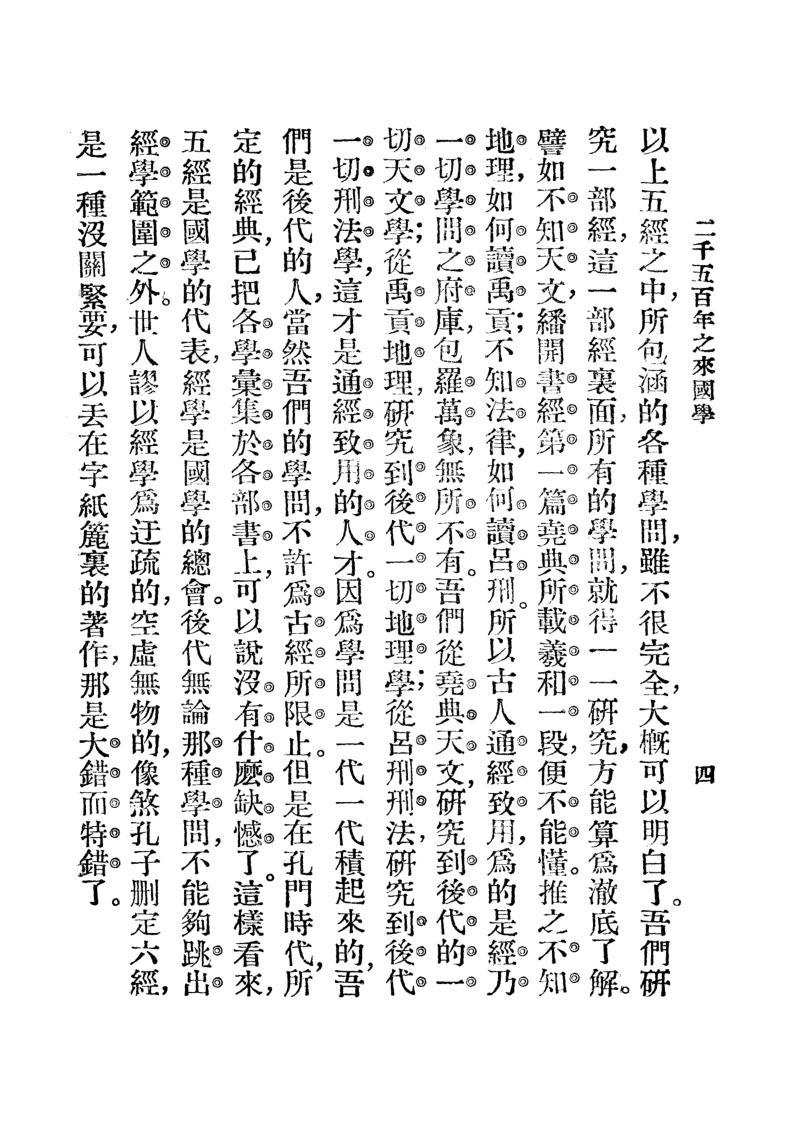 二千五百年之來國學
四
以上五經之中，所包涵的各種學問，雖不很完全，大概可以明白了。吾們研
究一部經，這一部經裏面，所有的學問，就得一一研究，方能算爲澈底了解。
譬如不知天文，繙開書經第一篇堯典所載羲和一段，便不能懂。推之不知
地理，如何讀禹貢；不知法律，如何讀呂刑。所以古人通經致用，爲的是經乃
一切學問之府庫，包羅萬象，無所不有。吾們從堯典天文，研究到後代的一
切天文學；從禹貢地理，研究到後代一切地理學；從呂刑刑法，研究到後代
一切刑法學，這才是通經致用的人才。因爲學問是一代一代積起來的，吾
們是後代的人，當然吾們的學問，不許爲古經所限止。但是在孔門時代，所
定的經典，已把各學彙集於各部書上，可以說沒有什麽缺憾了。這樣看來，
五經是國學的代表，經學是國學的總會。後代無論那種學問，不能夠跳出
經學範圍之外。世人謬以經學爲迂疏的，空虛無物的，像煞孔子刪定六經，
是一種沒關緊要，可以丟在字紙簏裏的著作，那是大錯而特錯了。